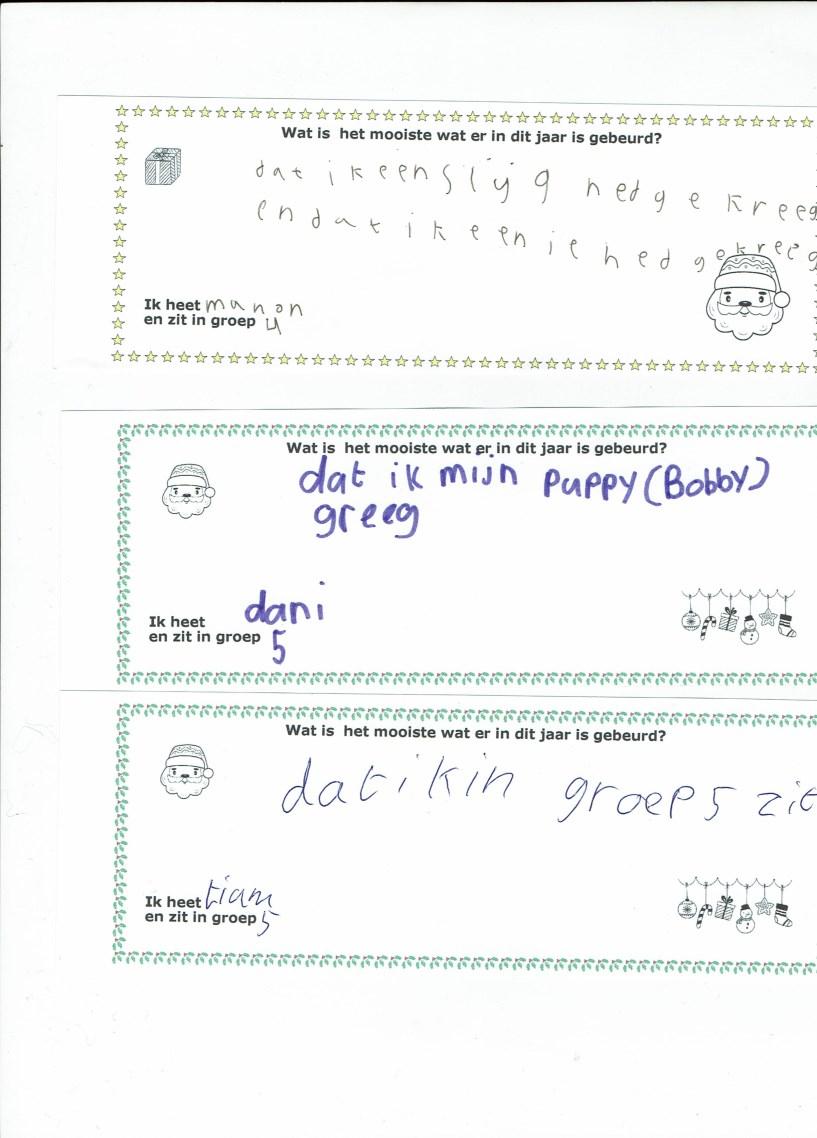 Wat is het mooiste wat er in dit jaar is gebeurd?
dat ik een slijg hed gekreeg
en dat ik een ie hed gekreeg
Ik heet manon
en zit in groep 4
Wat is het mooiste wat er in dit jaar is gebeurd?
dat ik mijn puppy (Bobby)
greeg
Ik heet dani
en zit in groep 5
Wat is het mooiste wat er in dit jaar is gebeurd?
dat ik in groep 5 zit
Ik heet tiam
en zit in groep 5